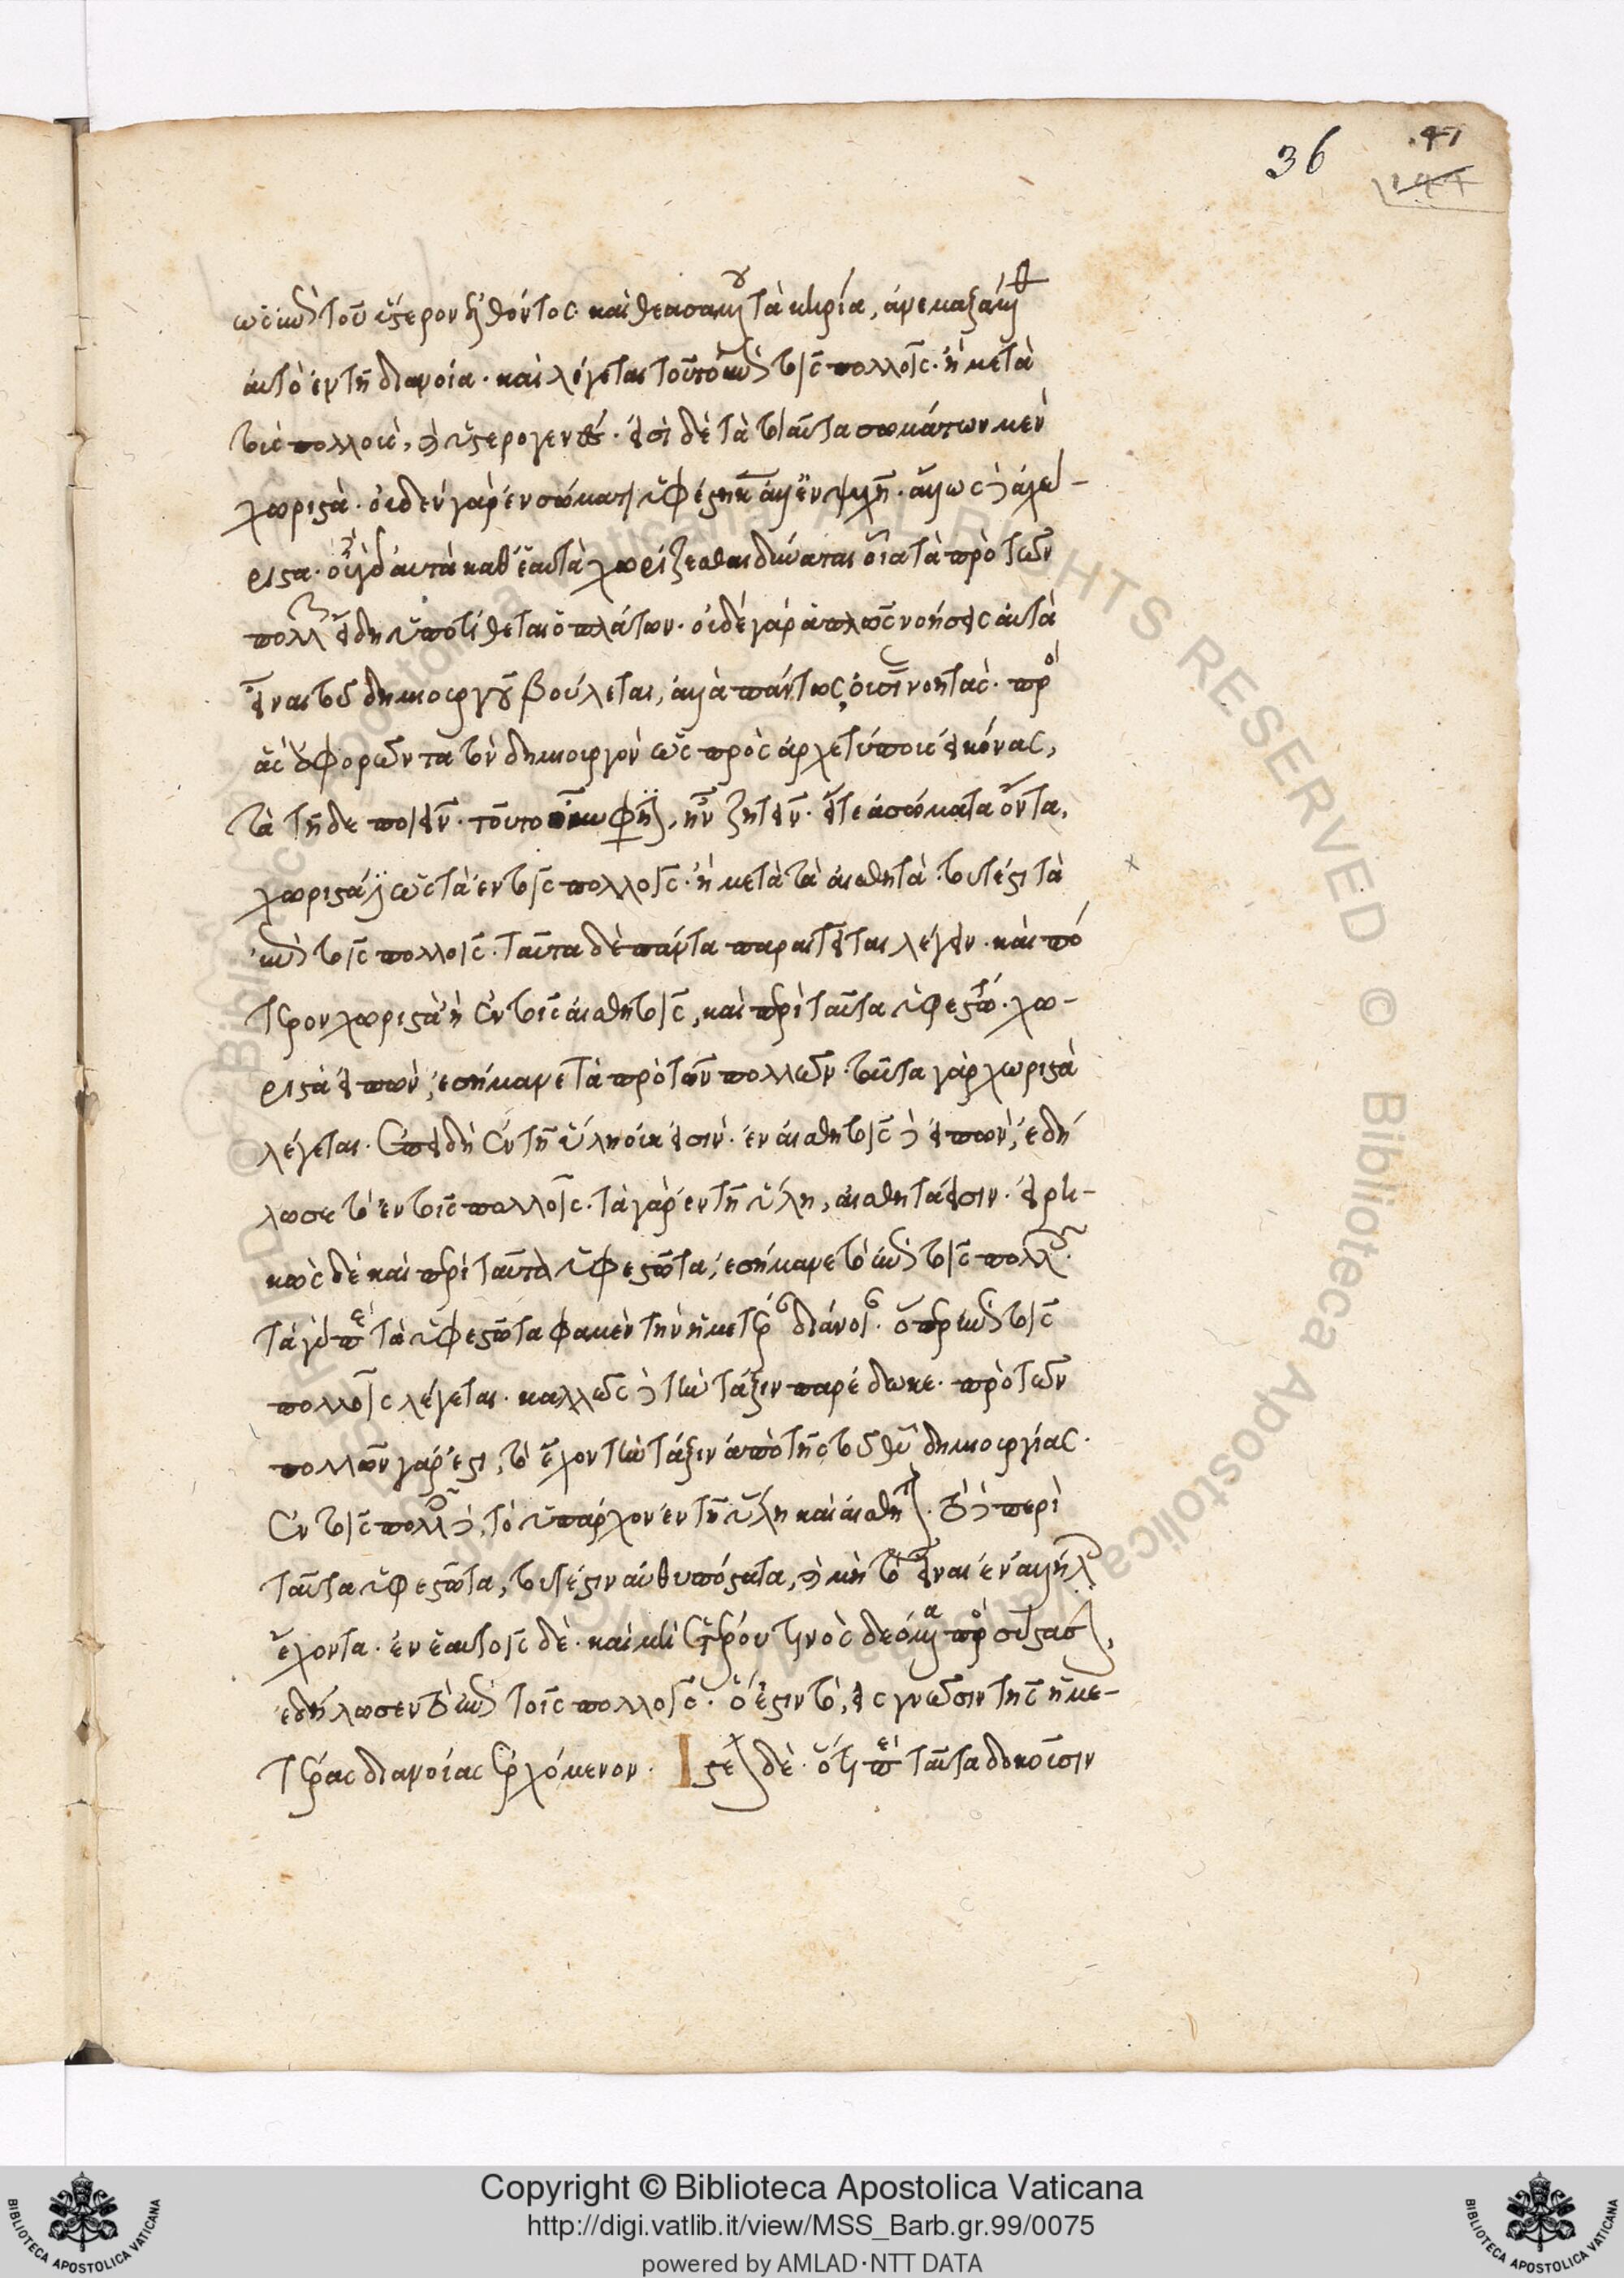 36
41
ὡς ἐπὶ τοῦ ὕστερον ἐλθόντος καὶ θεασαμένου τὰ κηρία, ἀνεμάξατο
αὐτὸ ἐν τῇ διανοίᾳ. καὶ λέγεται τοῦτο ἐπὶ τοῖς πολλοῖς. ἢ μετὰ
τοὺς πολλοὺς, καὶ ὑστερογενές. εἰσὶ δὲ τὰ τοιαῦτα σωμάτων μὲν
χωριστά. οὐδὲν γὰρ ἐν σώματι ὑφέστηκεν ἀλλ' ἐν ψυχῇ. ἄλλως δὲ ἀχώ-
ριστα. οὐ γὰρ αὐτὰ καθ' ἑαυτὰ χωρίζεσθαι δύναται οἷα τὰ πρὸ τῶν
πολλῶν εἴδη ὑποτίθεται ὁ πλάτων. οὐδὲ γὰρ ἁπλῶς νοήσεις αὐτὰ
εἶναι τοῦ δημιουργοῦ βούλεται, ἀλλὰ πάντως οὐσίας νοητάς. πρὸς
ἃς ἀφορῶντα τὸν δημιουργὸν ὡς πρὸς ἀρχετύπους εἰκόνας,
τὰ τῇδε ποιεῖν. τοῦτο φησὶν, ἦν ζητεῖν. εἴτε ἀσώματα ὄντα,
χωριστά ἐστιν ὡς τὰ ἐν τοῖς πολλοῖς. ἢ μετὰ τὰ αἰσθητὰ. τουτέστι τὰ
ἐπὶ τοῖς πολλοῖς. ταῦτα δὲ πάντα παραιτεῖται λέγειν. καὶ πό
τερον χωριστὰ ἢ ἐν τοῖς αἰσθητοῖς, καὶ περὶ ταῦτα ὑφεστῶτα. χω-
ριστὰ εἰπὼν, ἐσήμανε τὰ πρὸ τῶν πολλῶν. ταῦτα γὰρ χωριστὰ
λέγεται. ἐπειδὴ ἐν τῇ ὕλῃ οὐκ εἰσίν. ἐν αἰσθητοῖς δὲ εἰπὼν, ἐδή
λωσε τὸ ἐν τοῖς πολλοῖς. τὰ γὰρ ἐν τῇ ὕλῃ, αἰσθητά εἰσιν. εἰρη-
κὼς δὲ καὶ περὶ ταῦτα ὑφεστῶτα, ἐσήμανε τὸ ἐπὶ τοῖς πολλοῖς.
τὰ γὰρ περὶ τὰ ὑφεστῶτα φαμὲν τὴν ἡμετέραν διάνοιαν. ὅπερ ἐπὶ τοῖς
πολλοῖς λέγεται. καλῶς δὲ τὴν τάξιν παρέδωκε. πρὸ τῶν
πολλῶν γάρ ἐστι, τὸ ἔχον τὴν τάξιν ἀπὸ τῆς τοῦ θεοῦ δημιουργίας.
ἐν τοῖς πολλοῖς δὲ, τὸ ὑπάρχον ἐν τῇ ὕλῃ καὶ αἰσθητόν. τὸ δὲ περὶ
ταῦτα ὑφεστῶτα, τουτέστιν αὐθυπόστατα, καὶ μὴ τὸ εἶναι ἐν ἀλλήλοις
ἔχοντα. ἐν ἑαυτοῖς δὲ. καὶ μὴ ἑτέρου τινὸς δεόμενα πρὸς σύστασιν,
ἐδήλωσεν τὸ ἐπὶ τοῖς πολλοῖς. ὅ ἐστιν τὸ, εἰς γνῶσιν τῆς ἡμε-
τέρας διανοίας ἐρχόμενον. Ἰστέον δὲ. ὅτι περὶ ταῦτα δοκοῦσιν
Copyright © Biblioteca Apostolica Vaticana
http://digi.vatlib.it/view/MSS_Barb.gr.99/0075
powered by AMLAD·NTT DATA